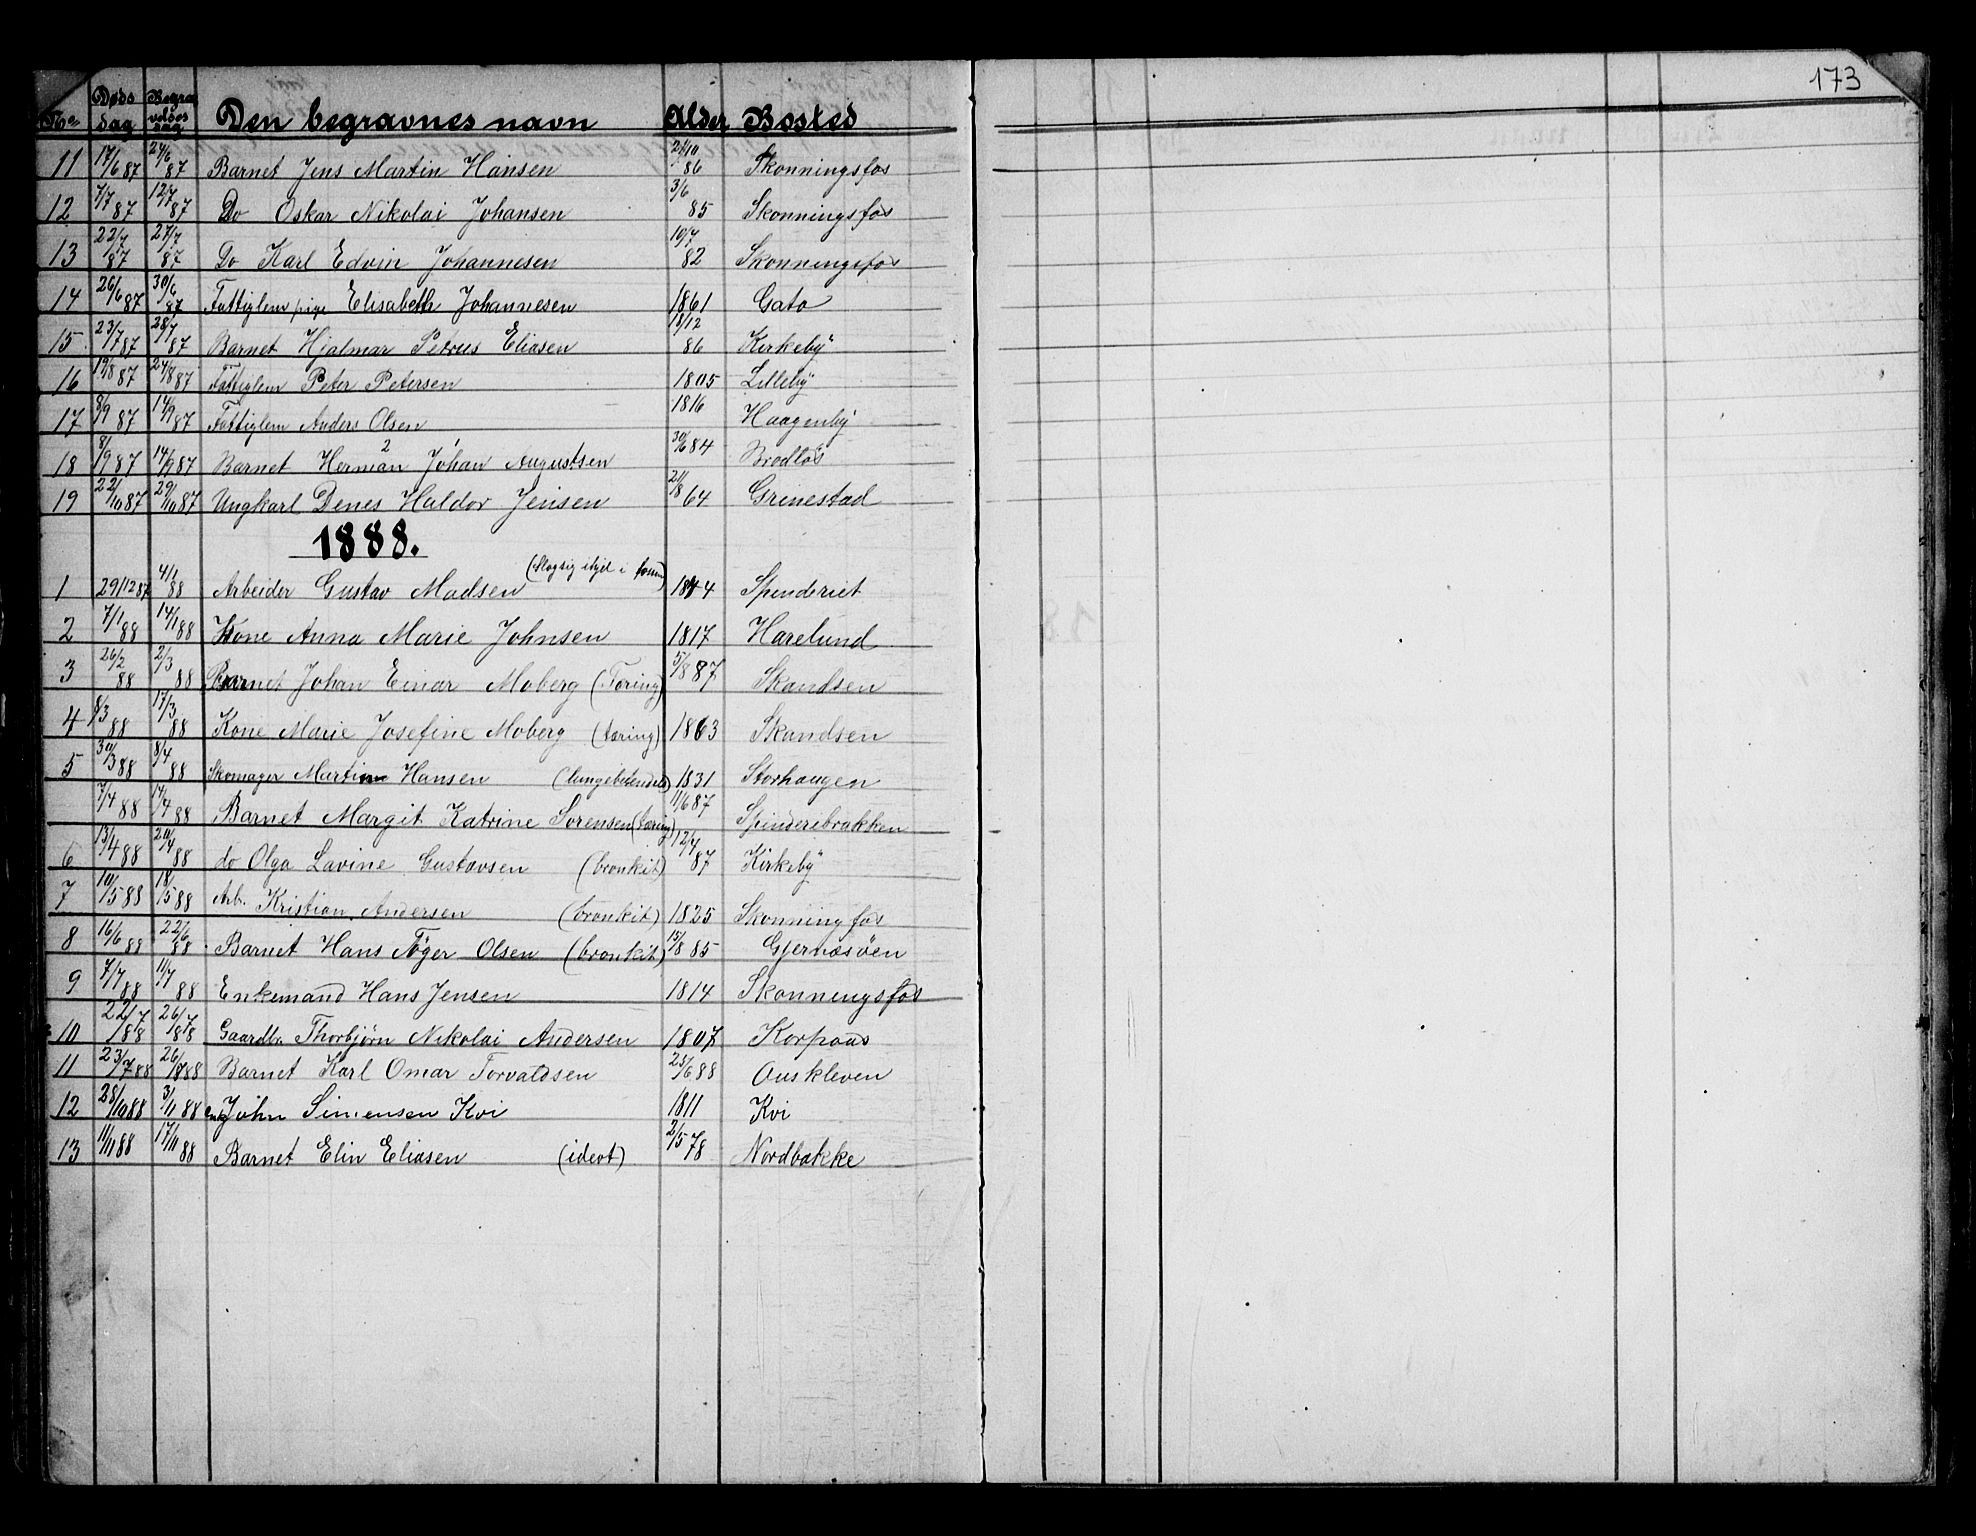 173
No Døds dag Begravelses dag Den begravnes navn Alder Bosted
11 17/6 87 24/6 87 Barnet Jens Martin Hansen 86 Skonningsfos
12 7/7 87 12/7 87 Do Oskar Nikolai Johansen 3/6 85 Skonningsfos
13 22/7 87 27/7 87 Do Karl Edvin Johannesen 19/7 82 Skonningsfos
14 26/6 87 30/6 87 Fattiglem pige Elisabeth Johannesen 1861 Gato
15 23/7 87 28/7 87 Barnet Hjalmar Petrus Eliasen 18/12 86 Kirkeby
16 19/8 87 24/8 87 Fattiglem Peter Petersen 1805 Lilleby
17 8/9 87 14/9 87 Fattiglem Anders Olsen 1816 Haagenby
18 8/9 87 14/9 87 Barnet Herman 2 Johan 1 Augustsen 30/6 84 Brodløs
19 22/10 87 29/10 87 Ungkarl Denes Haldor Jensen 21/8 64 Grinestad
1888.
1 29/12 87 4/1 88 Arbeider Gustav Madsen (Slog sig ihjel i fossen) 1844 Spinderiet
2 7/1 88 14/1 88 Kone Anna Marie Johnsen 1817 Harelund
3 26/2 88 2/3 88 Barnet Johan Einar Moberg (Tæring) 5/8 87 Skandsen
4 8/3 88 17/3 88 Kone Marie Josefine Moberg (tæring) 1863 Skandsen
5 30/3 88 8/4 88 Skomager Martin Hansen (lungebetændelse) 1831 Storhaugen
7/4 88 14/4 88 Barnet Margit Katrine Sørensen (tæring) 11/6 87 Spinderibrakken
6 13/4 88 20/4 88 do Olga Lavine Gustavsen (bronkit) 12/7 87 Kirkeby
7 10/5 88 18/5 88 Arb. Kristian Andersen (bronkit) 1825 Skonningfos
8 16/6 88 22/6 88 Barnet Hans Tøger Olsen (bronkit) 15/8 85 Gjernæsøen
9 7/7 88 11/7 88 Enkemand Hans Jensen 1814 Skonningsfos
10 22/7 88 26/7 88 Gaardbr. Thorbjørn Nikolai Andersen 1807 Korpaas
11 23/7 88 26/7 88 Barnet Karl Omar Torvaldsen 25/6 88 Auskleven
12 28/10 88 3/11 88 John Simensen Kvi 1811 Kvi
13 11/11 88 17/11 88 Barnet Elin Eliasen (ideot) 2/5 78 Nordbakke